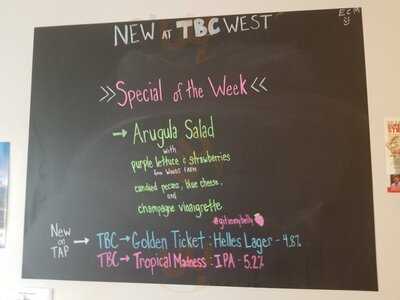 NEW AT TBC WEST
ECM
>> Special of the Week <<
→ Arugula Salad
with
purple lettuce & strawberries
from Woods Farm
candied pecans, blue cheese,
and
champagne vinaigrette
@getinmybelly
New on TAP →
TBC → Golden Ticket : Helles Lager - 4.8%
TBC → Tropical Madness : IPA - 5.2%